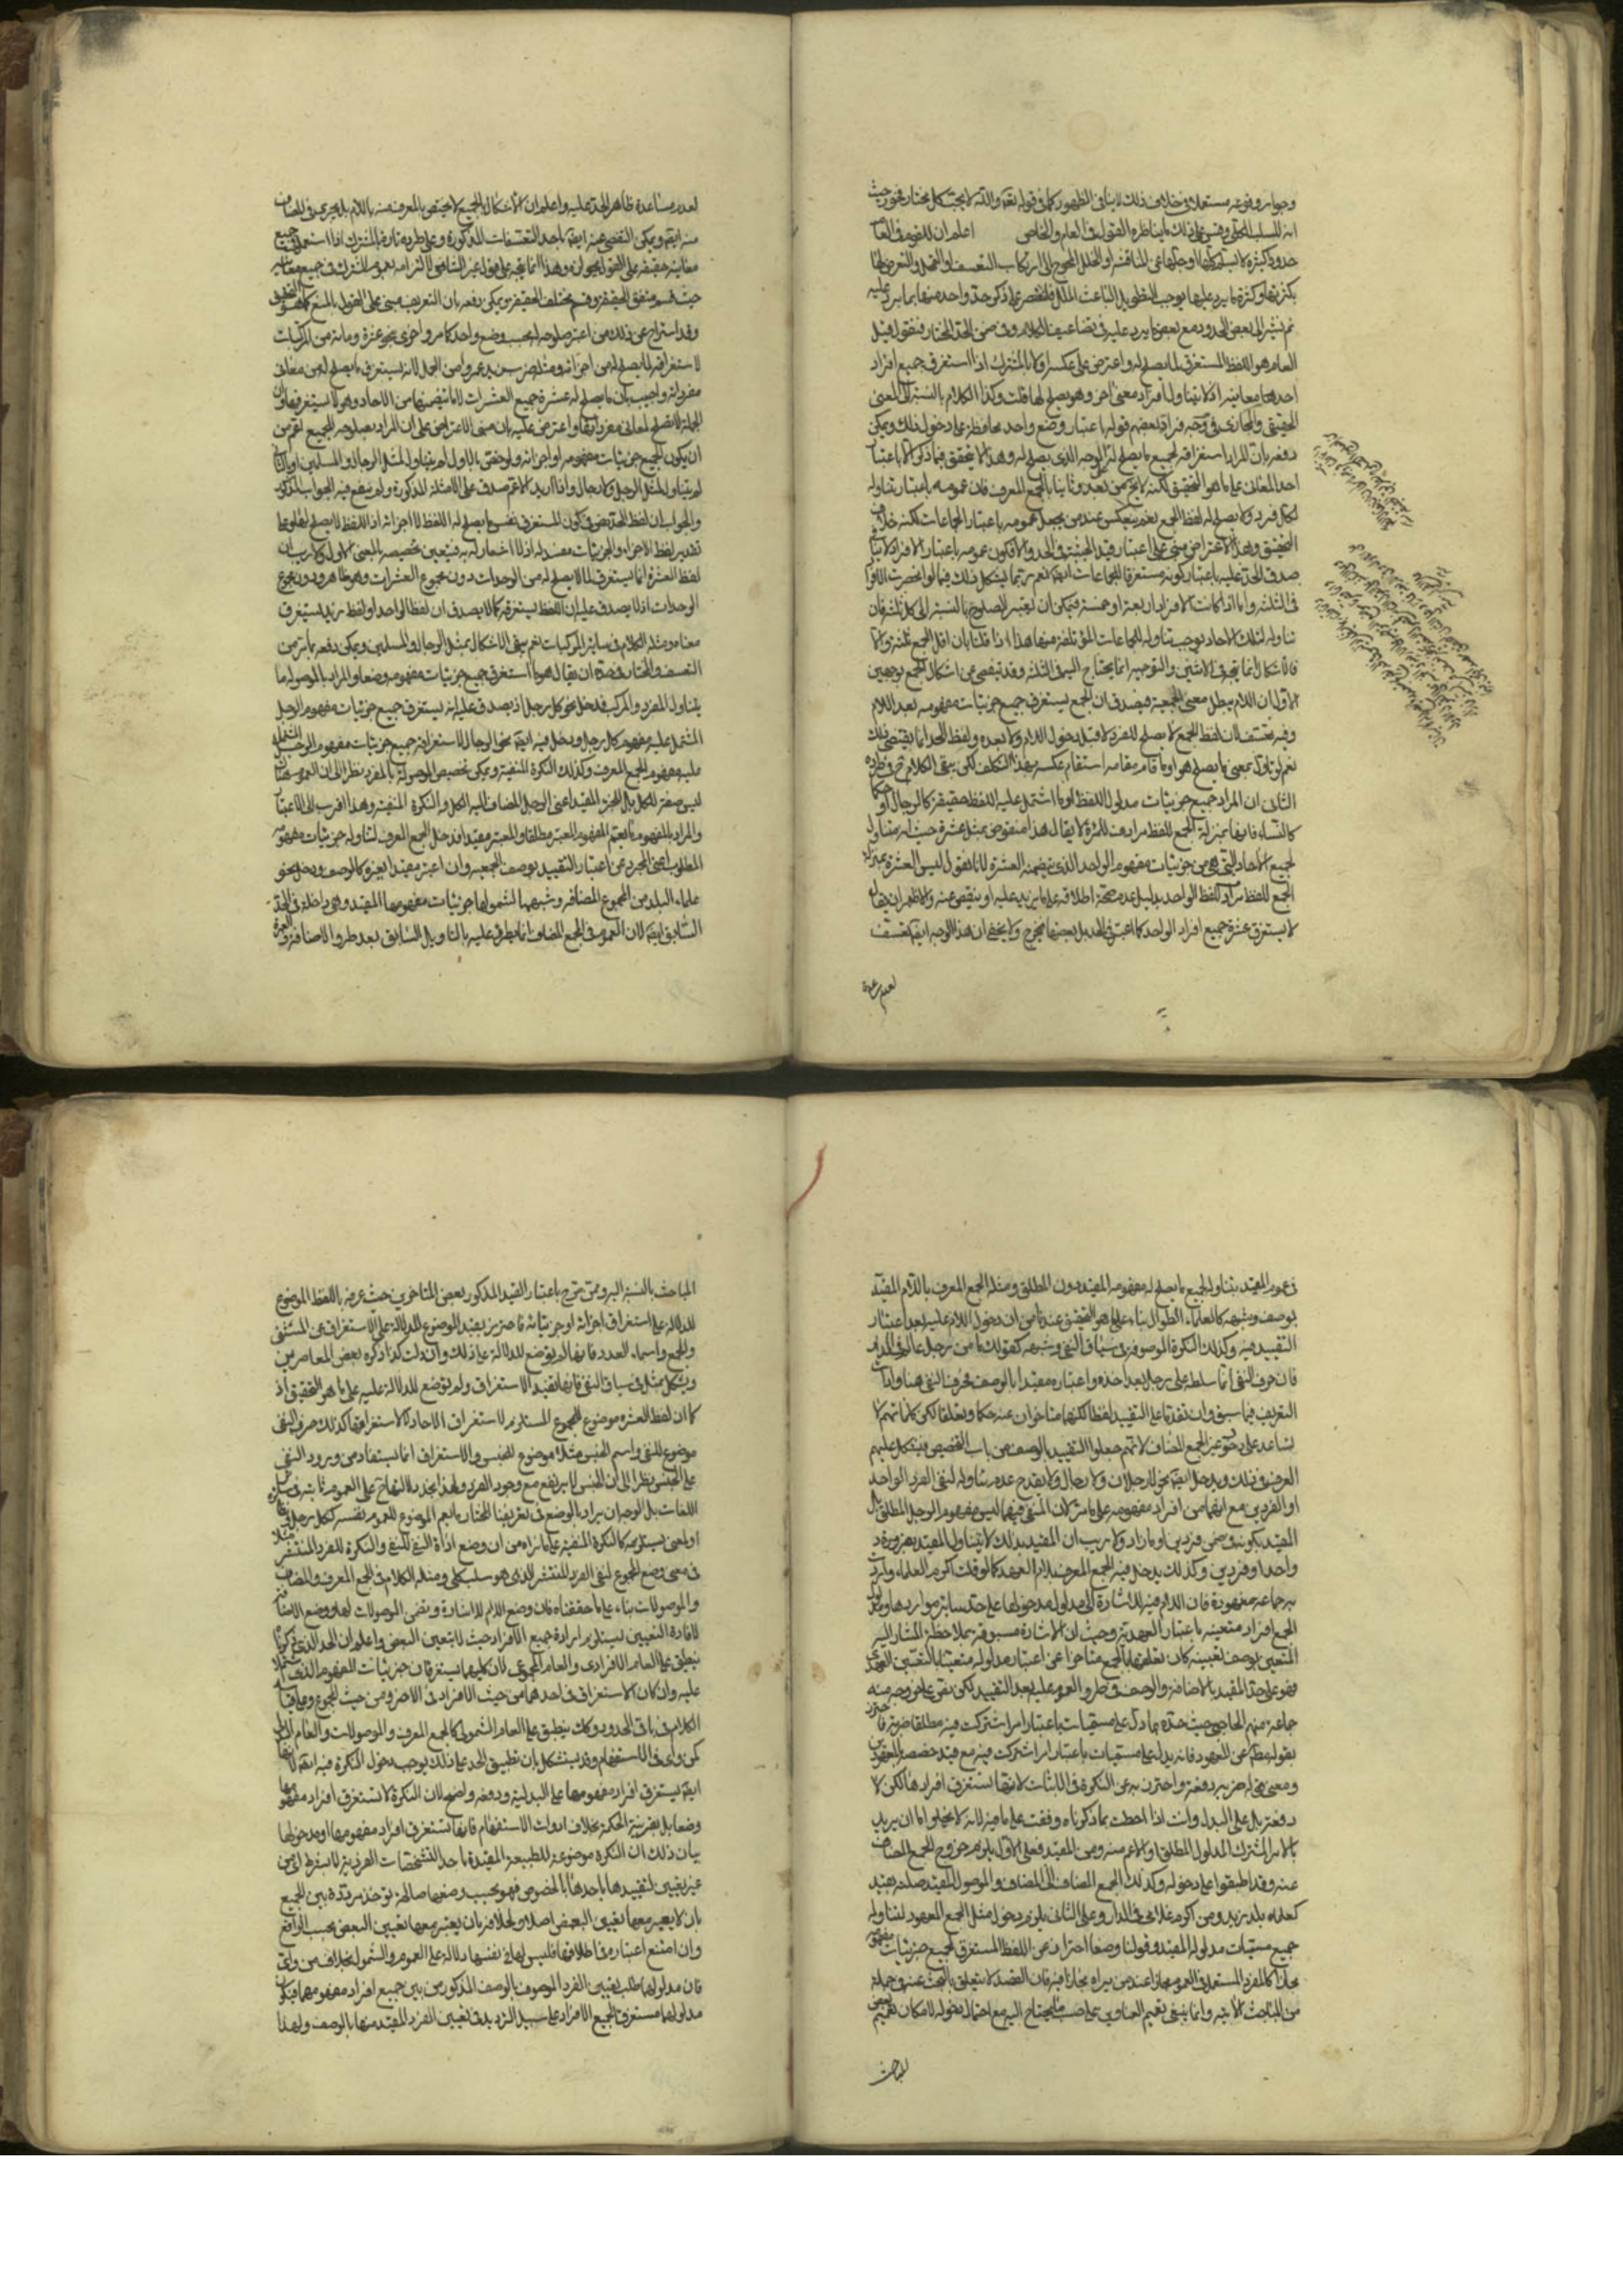 وجواز وقوعه مستعملا في خلاف ذلك لا ينافي الظهور كما في قوله تعالى والله لا يحب كل مختار فخور حيث
انه للسلب الكلي وقس على ذلك ما يناظره القول في العام والخاص اعلم ان للقوم في العام
حدودا كثيرة لا يسلم كلها او جلها عن المناقشة او الخلل المحوج الى ارتكاب التعسف او التمحل والتعرض لها
بكثرتها وكثرة ما يرد عليها يوجب التطويل الباعث للملل فلنقتصر على ذكر حد واحد منها بما يرد عليه
ثم نشير الى بعض الحدود مع بعض ما يرد عليه في تضاعيف الكلام وفي ضمن الحد المختار فنقول قيل
العام هو اللفظ المستغرق لما يصلح له واعترض على عكسه اولا بالمشترك اذا استغرق جميع افراد
احد معانيه اذ لا يتناول افراد معنى اخر وهو يصلح لها قلت وكذا الكلام بالنسبة الى المعنى
الحقيقي والمجازي ومن ثم زاد بعضهم قوله باعتبار وضع واحد محافظة على دخول ذلك ويمكن
دفعه بان المراد استغراقه لجميع ما يصلح له على الوجه الذي يصلح له وهذا لا يتحقق فيما ذكر الا باعتبار
احد المعاني على ما هو التحقيق لكنه لا يخ من بعد وثانيا بالجمع المعرف فان عمومه باعتبار تناوله
لكل فرد ولا يصلح له لفظ الجمع نعم ينعكس عند من يجعل عمومه باعتبار الجماعات لكنه خلاف
التحقيق وهذا الاعتراض مبني على اعتبار قيد الحيثية في الحد والا فكون عمومه باعتبار الافراد لا ينافي
صدق الحد عليه باعتبار كونه مستغرقا للجماعات ايضا نعم ربما يشكل ذلك فيما لو انحصرت الافراد
في الثلثة واما اذا كانت الافراد اربعة او خمسة فيمكن ان يعتبر الصلوح بالنسبة الى كل ثلثة فان
تناوله لتلك الاحاد يوجب تناوله للجماعات المؤتلفة منها هذا اذا قلنا بان اقل الجمع ثلثة والا
فالاشكال انما يتجه في الاثنين والتوجيه انما يحتاج اليه في الثلثة وقد تفصي عن اشكال الجمع بوجهين
الاول ان اللام يبطل معنى الجمعية فيصدق ان الجمع يستغرق جميع جزئيات مفهومه بعد اللام
وفيه تعسف لان لفظ الجمع لا يصلح للمفرد لا قبل دخول اللام ولا بعده ولفظ الحد انما يقتضي ذلك
نعم لو ناول بمعنى ما يصلح هو او ما قام مقامه استقام عكسه بهذا التكلف لكن يبقى الكلام في طرده
الثاني ان المراد جميع جزئيات مدلول اللفظ او ما اشتمل عليه اللفظ حقيقة كالرجال او حكما
كالنساء فانها بمنزلة الجمع للفظ مرادف للمرأة لا يقال هذا منقوض بمثل عشرة حيث انه متناول
لجميع الاحاد التي هي من جزئيات مفهوم الواحد الذي يتضمنه العشرة لانا نقول ليس العشرة بمنزلة
الجمع للفظ مرادف للفظ الواحد بدليل عدم صحة اطلاقه على ما يزيد عليه او ينقص عنه والاظهر ان يقال
لا يستغرق عشرة جميع افراد الواحد كما اعتبر في الحد بل بعضها فيخرج ولا يخفى ان هذا الوجه ايضا تعسف
لعدم مساعدة
لعدم مساعدة ظاهر الحد عليه واعلم ان الاشكال بالجمع لا يختص بالمعرف منه باللام بل يجري في المضاف
منه ايضا ويمكن التفصي عنه ايضا باحد التعسفات المذكورة وعلى طرده تارة بالمشترك اذا استعمل في جميع
معانيه حقيقة على القول بجوازه وهذا انما يتجه على قول غير الشافعي لالتزامه بعموم المشترك في جميع معانيه
حيث قسم متفق الحقيقة وقسم مختلف الحقيقة ويمكن دفعه بان التعريف مبني على القول بالمنع كما هو التحقيق
وقد استراح عن ذلك من اعتبر صلوحه له بحسب وضع واحد كما مر واخرى بنحو عشرة ومائة من المركبات
لاستغراقه لما يصلح له من اجزائه ومثله ضرب زيد عمروا من الجمل لانه يستغرق ما يصلح له من معاني
مفرداته واجيب بان ما يصلح له عشرة جميع العشرات لا ما تتضمنها من الاحاد وهو لا يستغرقها وان
الجملة لا تصلح لمعاني مفرداتها واعترض عليه بان مبنى الاعتراض على ان المراد بصلوحه للجميع اعم من
ان يكون لجميع جزئيات مفهومه او اجزائه ولو خص بالاول لم يتناول مثل الرجال والمسلمين او بالثاني
لم يتناول مثل الرجل ولا رجال واذا اريد الاعم صدق على الامثلة المذكورة ولم ينفع فيه الجواب المذكور
والجواب ان لفظ الحد نص في كون المستغرق نفس ما يصلح له اللفظ لا اجزائه اذ اللفظ لا يصلح لها وعلى
تقدير لفظ الاجزاء والجزئيات مفسد له اذ لا اشعار له به فتعين تخصيصه بالمعنى الاول ولا ريب ان
لفظ العشرة انما يستغرق لما لا يصلح له من الوحدات دون مجموع العشرات وهو ظاهر ودون مجموع
الوحدات اذ لا يصدق عليه ان اللفظ يستغرقه كما لا يصدق ان لفظ الواحد او لفظ زيد يستغرق
معناه ومثله الكلام في سائر المركبات نعم يبقى الاشكال بمثل الرجال والمسلمين ويمكن دفعه بما مر من
التعسف والمختار في حده ان يقال هو ما استغرق جميع جزئيات مفهومه وضعا والمراد بالموصولة ما
يتناول المفرد والمركب فدخل نحو كل رجل اذ يصدق عليه انه يستغرق جميع جزئيات مفهوم الرجل
المشتمل عليه مفهوم كل رجل ودخل فيه ايضا نحو الرجال لاستغراقه جميع جزئيات مفهوم الرجل المشتمل
عليه مفهوم الجمع المعرف وكذلك النكرة المنفية ويمكن تخصيص الموصولة بالمفرد نظرا الى ان العموم هنا
ليس صفة للكل بل للجزء المقيد اعني الرجل المضاف اليه الكل والنكرة المنفية وهذا اقرب الى الاعتبار
والمراد بالمفهوم ما يعم المفهوم المعتبر مطلقا والمعتبر مقيدا فدخل الجمع المعرف لتناوله جزئيات مفهومه
المطلوب اعني المجرد عن اعتبار التقييد بوصف الجمعية وان اعتبر مقيدا بغيره كالوصف ودخل نحو
علماء البلد من الجموع المضافة وشبهها لشمولها جزئيات مفهومها المقيد وهي داخلة في الحد
السابق ايضا لان العموم في الجمع المضاف انما يطرء عليه بالتاويل السابق بعد طرو الاضافة والعبرة
في عموم المقيد بتناوله لجميع ما يصلح له مفهومه المقيد دون المطلق ومثله الجمع المعرف باللام المقيد
بوصف وشبهه كالعلماء الطوال بناء على ما هو التحقيق عندنا من ان دخول اللام عليه بعد اعتبار
التقييد فيه وكذلك النكرة الموصوفة في سياق النفي وشبهه كقولك ما من رجل عالم في الدار
فان حرف النفي انما سلط على رجل بعد اخذه واعتباره مقيدا بالوصف فحرف النفي هنا واداة
التعريف فيما سبق وان تقدما على التقييد لفظا لكنهما متاخران عنه حكما وتعلقا لكن كلماتهم لا
تساعد على دخول غير الجمع المضاف لانهم جعلوا التقييد بالوصف من باب التخصيص فيشكل عليهم
الفرق في ذلك ويدخل ايضا نحو لا رجلان ولا رجال ولا يقدح عدم تناوله لنفي الفرد الواحد
او الفردين مع انهما من افراد مفهومه على ما مر لان المنفي فيهما ليس مفهوم الرجل المطلق بل
المقيد بكونه في ضمن فردين او ما زاد ولا ريب ان المقيد بذلك لا يتناول المقيد بغيره فرد
واحد او فردين وكذلك يدخل فيه الجمع المعرف بلام العهد كما لو قلت اكرم العلماء واردت
به جماعة معهودة فان اللام فيه للاشارة الى مدلول مدخولها على حد سائر مواردها ومدلول
الجمع افراد متعينة باعتبار العهدية وحيث ان الاشارة مسبوقة بملاحظة المشار اليه
المتعين بوصف تعيينه كان تعلقها بالجمع متاخرا عن اعتبار مدلوله متعينا بالتعيين العهدي
فهو على حد المقيد بالاضافة والوصف في طرو العموم عليه بعد التقييد لكن بقي على خروجه منه
جماعة منهم الحاجبي حيث حده بما دل على مسميات باعتبار امر اشتركت فيه مطلقا ضربة فاحترز
بقوله مطلقا عن المعهود فانه يدل على مسميات باعتبار امر اشتركت فيه مع قيد خصصه بالمعهودين
ومعنى قوله ضربة دفعة واحترز به عن النكرة في الاثبات لانها تستغرق افرادها لكن لا
دفعة بل على البدل وانت اذا احطت بما ذكرناه وقفت على ما فيه لانه لا يخلو اما ان يريد
بالامر المشترك المدلول المطلق او الاعم منه ومن المقيد فعلى الاول يلزم خروج الجمع المضاف
عنه وقد اطبقوا على دخوله وكذلك الجمع المضاف الى المضاف والموصول المقيد صلته بقيد
كعلماء بلد زيد ومن اكرم غلامي في الدار وعلى الثاني يلزم دخول مثل الجمع المعهود لتناوله
جميع مسميات مدلوله المقيد وقولنا وضعا احتراز عن اللفظ المستغرق لجميع جزئيات مفهومه
مجازا كالمفرد المستعمل في العموم مجازا عند من يراه مجازا فيه فان القصد لا يتعلق بالبحث عنه في جملة
من المباحث الاتية وانما ينبغي تعميم العناوين على حسب ما يحتاج اليه مع احتمال دخوله لامكان تعميم بعض
المباحث
المباحث بالنسبة اليه وممن صرح باعتبار القيد المذكور بعض المتاخرين حيث عرفه باللفظ الموضوع
للدلالة على استغراق اجزائه او جزئياته فاحترز بقيد الموضوع للدلالة على الاستغراق عن المثنى
والجمع واسماء العدد فانها لم توضع للدلالة على ذلك وان دلت كذا ذكره بعض المعاصرين
ويشكل بمثل في سياق النفي فانها تفيد الاستغراق ولم توضع للدلالة عليه على ما هو التحقيق اذ
كما ان لفظ العشرة موضوع للمجموع المستلزم لاستغراق الاحاد لا لاستغراقها كذلك حرف النفي
موضوع للنفي واسم الجنس مثلا موضوع للجنس والاستغراق انما يستفاد من ورود النفي
على الجنس نظرا الى ان الجنس لا يرتفع مع وجود الفرد ولهذا نجد دلالتها على العموم ثابتة في سائر
اللغات بل الوجه ان يراد بالوضع في تعريفنا المختار ما يعم الموضوع للعموم بنفسه ككل رجل
او لمعنى يستلزمه كالنكرة المنفية على ما نراه من ان وضع اداة النفي للنفي والنكرة للفرد المنتشر مثلا
في معنى وضع المجموع لنفي الفرد المنتشر الذي هو سلب كلي ومثله الكلام في الجمع المعرف والمضاف
والموصولات بناء على ما حققناه فان وضع اللام للاشارة وبعض الموصولات لها ووضع الاضافة
لافادة التعيين يستلزم ارادة جميع الافراد حيث لا يتعين البعض واعلم ان الحد الذي ذكرناه
ينطبق على العام الافرادي والعام المجموعي لان كليهما يستغرقان جزئيات المفهوم الذي اشتملا
عليه وان كان الاستغراق في احدهما من حيث الافراد وفي الاخر من حيث المجموع وعلى قياسه
الكلام في باقي الحدود وكك ينطبق على العام الشمولي كالجمع المعرف والموصولات والعام البدلي
كمن واي في الاستفهام وقد يستشكل بان تطبيق الحد على ذلك يوجب دخول النكرة فيه ايضا لانها
ايضا يستغرق افراد مفهومها على البدلية ودفعه واضح لان النكرة لا تستغرق افراد مفهومها
وضعا بل بقرينة الحكمة بخلاف ادوات الاستفهام فانها تستغرق افراد مفهومها او مدخولها
بيان ذلك ان النكرة موضوعة للطبيعة المقيدة باحد التشخصات الفردية لا بشرط اي من
غير تعيين لتقييدها باحدها بالخصوص فهو بحسب وضعها صالحة لان توخذ مرددة بين الجميع
بان لا يعتبر معها تعيين البعض اصلا ولاخلافه بان يعتبر معها تعيين البعض بحسب الواقع
وان امتنع اعتباره في اطلاقها فليس لها في نفسها دلالة على العموم والشمول بخلاف من واي
فان مدلولها طلب تعيين الفرد الموصوف بالوصف المذكور من بين جميع افراد مفهومهما فيكون
مدلولهما مستغرقا لجميع الافراد على سبيل الترديد في تعيين الفرد المقيد منها بالوصف ولهذا